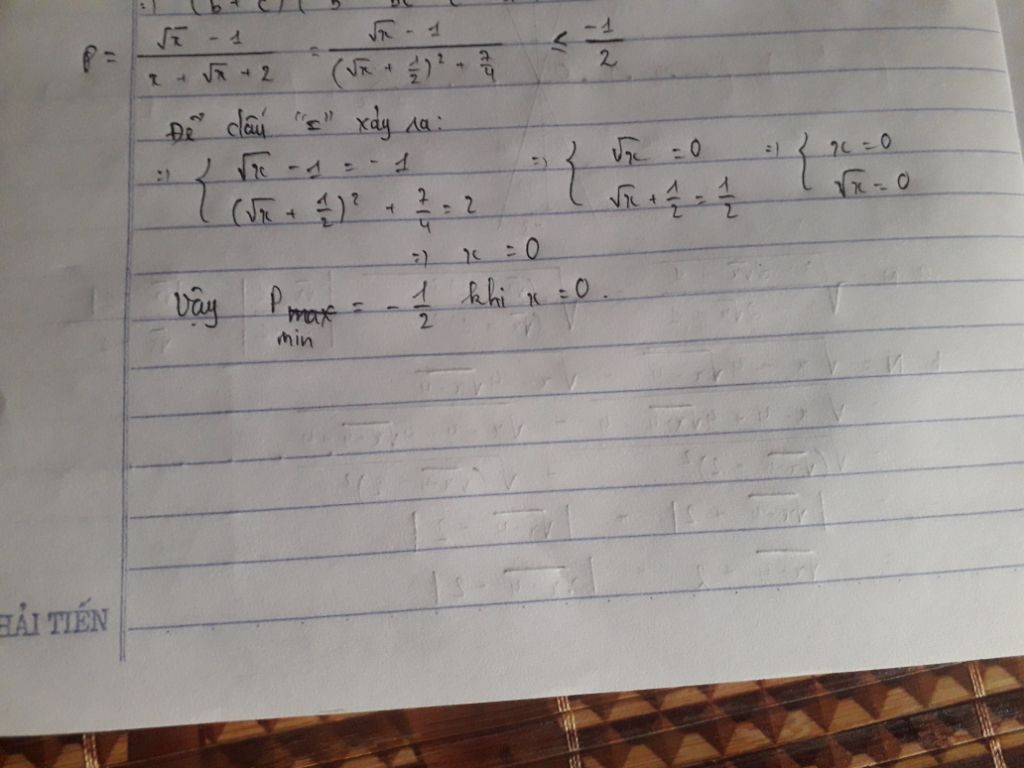 P = (√x - 1)/(x + √x + 2) = (√x - 1)/((√x + 1/2)² + 7/4) ≤ -1/2
Để dấu "=" xảy ra:
=> { √x - 1 = -1 => { √x = 0 => { x = 0
(√x + 1/2)² + 7/4 = 2 √x + 1/2 = 1/2 √x = 0
=> x = 0
Vậy Pmax = - 1/2 khi x = 0.
min
HẢI TIẾN